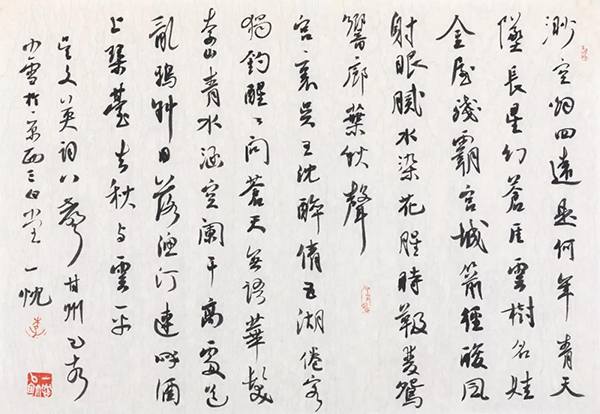 渺空烟四遠是何年青天
墜長星幻蒼厓雲樹名娃
金屋殘霸宮城箭徑酸風
射眼膩水染花腥時靸雙鴛
響廊葉秋聲
宮裏吳王沈醉倩五湖倦客
獨釣醒々問蒼天無語華髮
奈山青水涵空闌干高處送
亂鴉斜日落漁汀連呼酒
上琴臺去秋与雲平
吴文英詞八聲甘州乙未
小雪於京西三白堂一忱